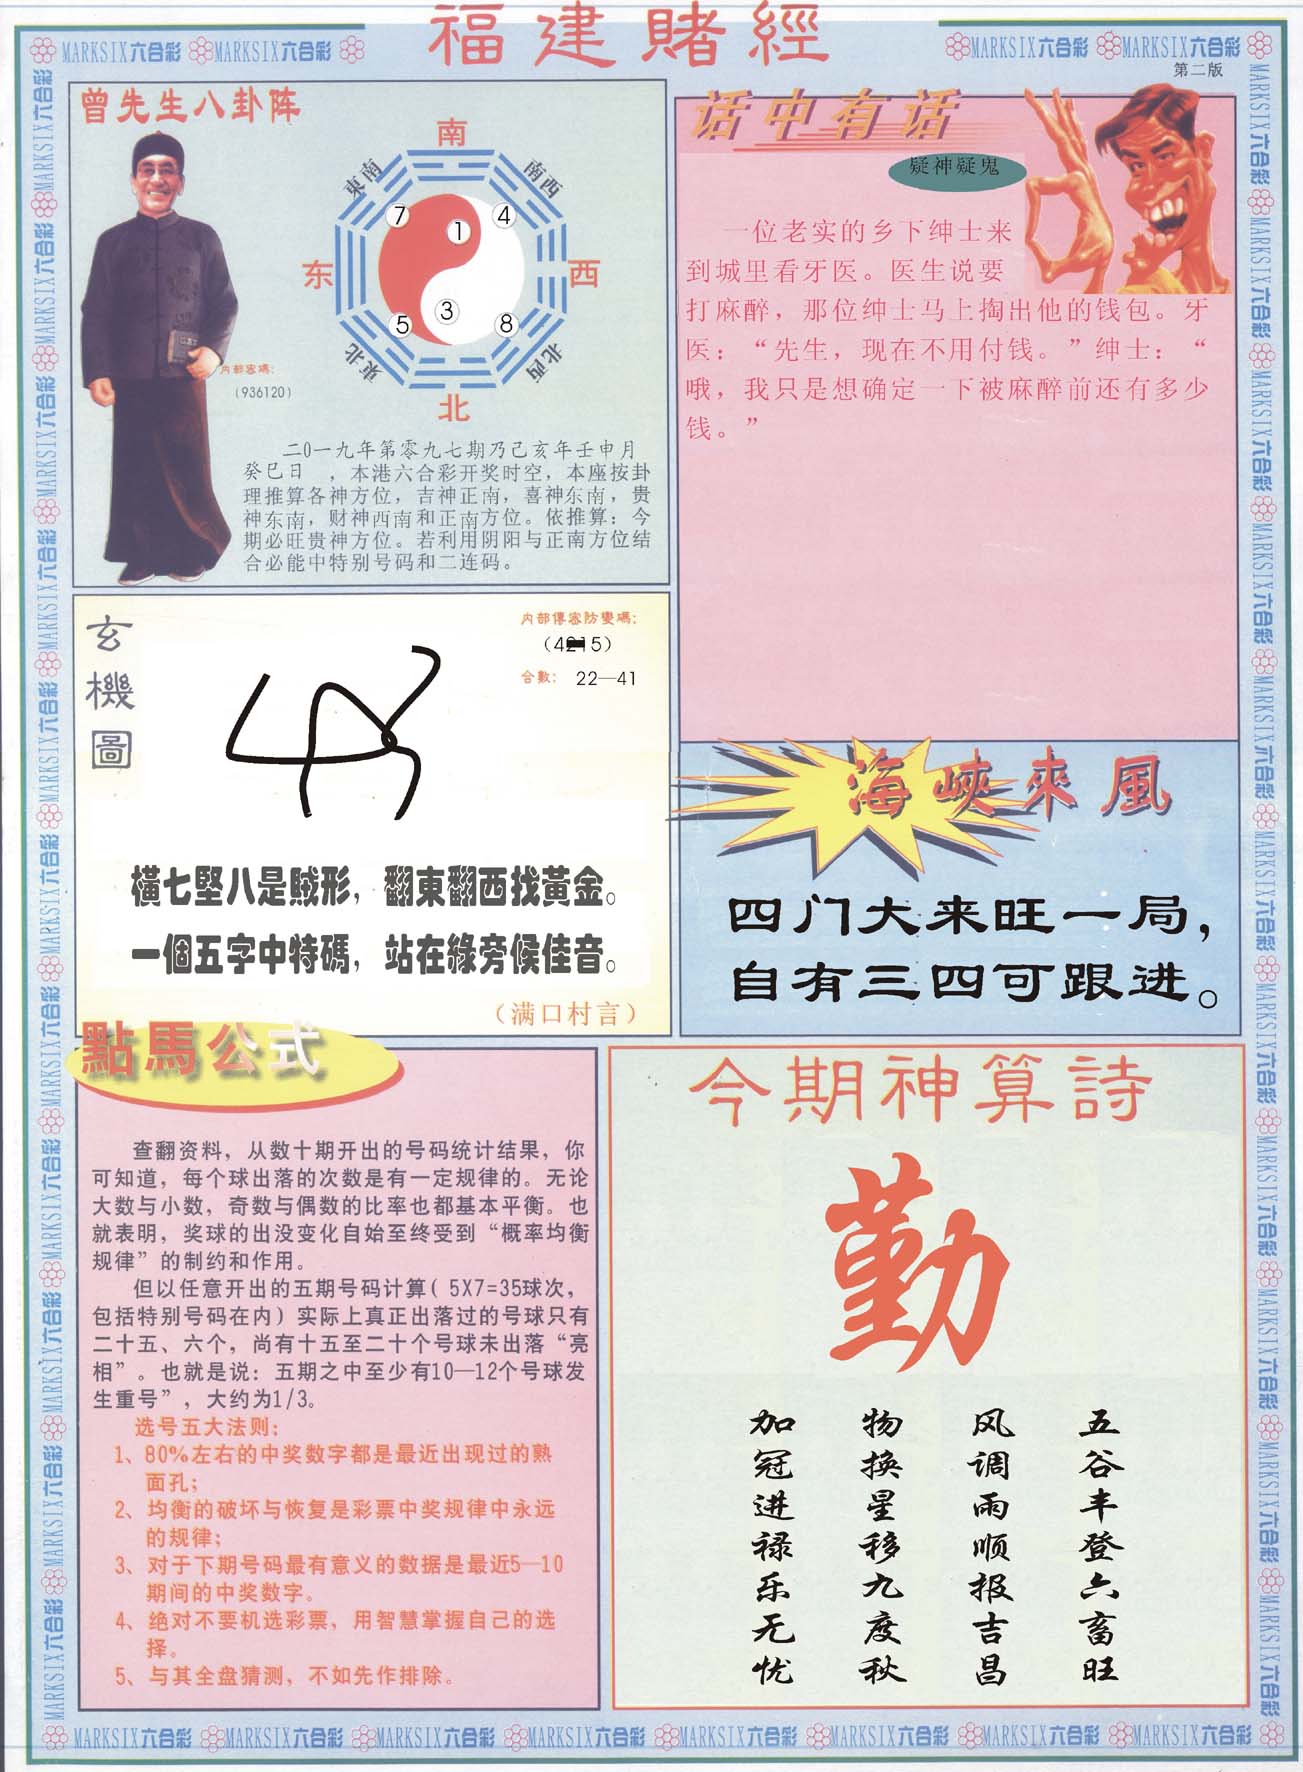 福建賭經
MARKSIX六合彩 MARKSIX六合彩
MARKSIX六合彩 MARKSIX六合彩
第二版
曾先生八卦阵
南
東南
南西
7
1
4
东
西
5
3
8
東北
北西
北
内部密碼：
（936120）
二0一九年第零九七期乃己亥年壬申月
癸巳日 ，本港六合彩开奖时空，本座按卦
理推算各神方位，吉神正南，喜神东南，贵
神东南，财神西南和正南方位。依推算：今
期必旺贵神方位。若利用阴阳与正南方位结
合必能中特别号码和二连码。
话中有话
疑神疑鬼
一位老实的乡下绅士来
到城里看牙医。医生说要
打麻醉，那位绅士马上掏出他的钱包。牙
医：“先生，现在不用付钱。”绅士：“
哦，我只是想确定一下被麻醉前还有多少
钱。”
玄機圖
内部傳密防變碼：
合數： 22—41
橫七堅八是賊形，翻東翻西找黃金。
一個五字中特碼，站在綠旁候佳音。
（满口村言）
海峽來風
四门大来旺一局，
自有三四可跟进。
點馬公式
查翻资料，从数十期开出的号码统计结果，你
可知道，每个球出落的次数是有一定规律的。无论
大数与小数，奇数与偶数的比率也都基本平衡。也
就表明，奖球的出没变化自始至终受到“概率均衡
规律”的制约和作用。
但以任意开出的五期号码计算( 5X7=35球次，
包括特别号码在内）实际上真正出落过的号球只有
二十五、六个，尚有十五至二十个号球未出落“亮
相”。也就是说：五期之中至少有10—12个号球发
生重号”，大约为1/3。
选号五大法则：
1、80%左右的中奖数字都是最近出现过的熟
面孔；
2、均衡的破坏与恢复是彩票中奖规律中永远
的规律；
3、对于下期号码最有意义的数据是最近5—10
期间的中奖数字。
4、绝对不要机选彩票，用智慧掌握自己的选
择。
5、与其全盘猜测，不如先作排除。
今期神算詩
勤
五谷丰登六畜旺
风调雨顺报吉昌
物换星移九度秋
加冠进禄乐无忧
MARKSIX六合彩 MARKSIX六合彩 MARKSIX六合彩 MARKSIX六合彩 MARKSIX六合彩 MARKSIX六合彩 MARKSIX六合彩 MARKSIX六合彩